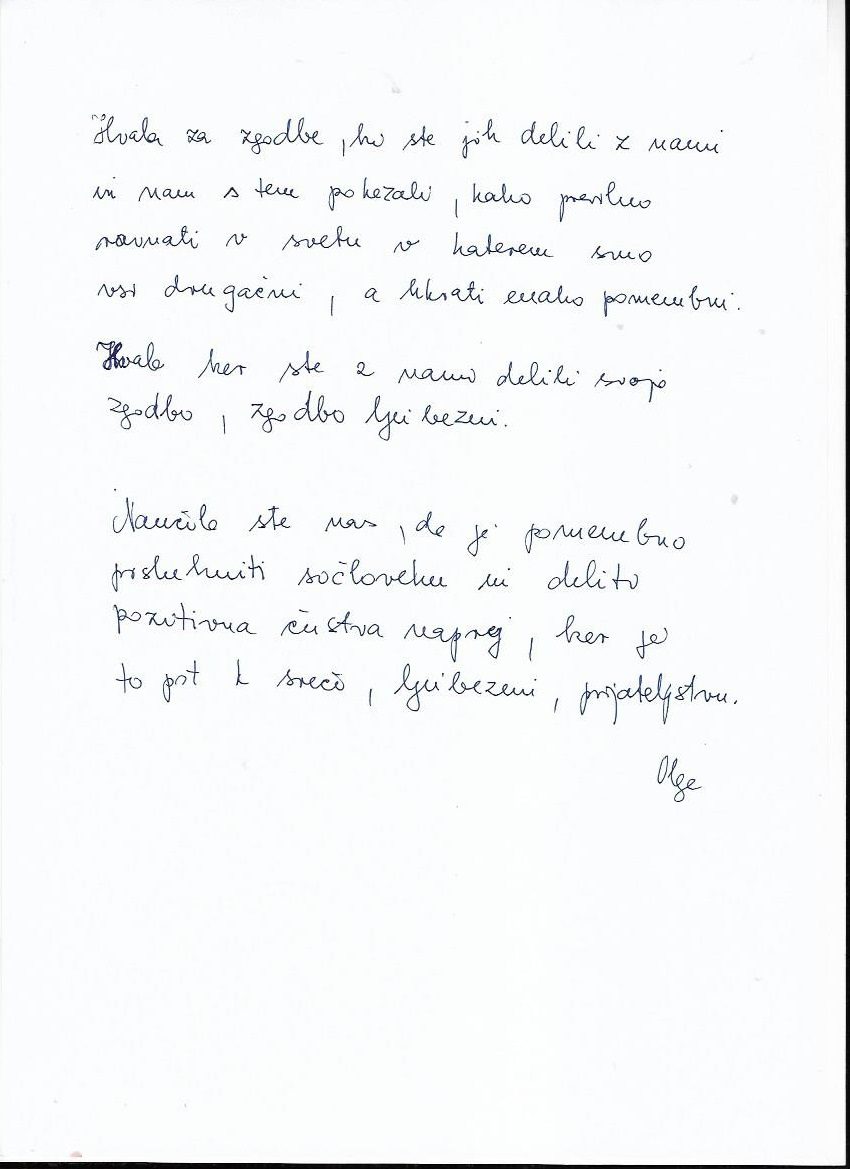 Hvala za zgodbe, ki ste jih delili z nami
in nam s tem pokazali, kako pravilno
ravnati v svetu v katerem smo
vsi drugačni, a hkrati enako pomembni.
Hvala ker ste z nami delili svojo
zgodbo, zgodbo ljubezni.
Naučila ste nas, da je pomembno
prisluhniti sočloveku in deliti
pozitivna čustva naprej, ker je
to pot k sreči, ljubezni, prijateljstvu.
Olga